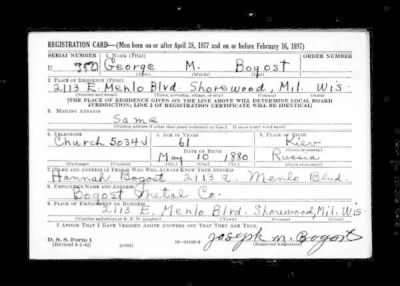 REGISTRATION CARD—(Men born on or after April 28, 1877 and on or before February 16, 1897)
SERIAL NUMBER 1. NAME (Print) ORDER NUMBER
U 350 George M. Bogost
(First) (Middle) (Last)
2. PLACE OF RESIDENCE (Print)
2113 E. Menlo Blvd. Shorewood, Mil. Wis.
(Number and street) (Town, township, village, or city) (County) (State)
[THE PLACE OF RESIDENCE GIVEN ON THE LINE ABOVE WILL DETERMINE LOCAL BOARD
JURISDICTION; LINE 2 OF REGISTRATION CERTIFICATE WILL BE IDENTICAL]
3. MAILING ADDRESS
Same
[Mailing address if other than place indicated on line 2. If same insert word same]
4. TELEPHONE 5. AGE IN YEARS 6. PLACE OF BIRTH
Church 5034J 61 Kiev
DATE OF BIRTH (Town or county)
May 10 1880 Russia
(Exchange) (Number) (Mo.) (Day) (Yr.) (State or country)
7. NAME AND ADDRESS OF PERSON WHO WILL ALWAYS KNOW YOUR ADDRESS
Hannah Bogost 2113 E. Menlo Blvd.
8. EMPLOYER'S NAME AND ADDRESS
Bogost Metal Co.
9. PLACE OF EMPLOYMENT OR BUSINESS
2113 E. Menlo Blvd. Shorewood, Mil. Wis
(Number and street or R. F. D. number) (Town) (County) (State)
I AFFIRM THAT I HAVE VERIFIED ABOVE ANSWERS AND THAT THEY ARE TRUE.
D. S. S. Form 1
(Revised 4-1-42) (over)
Joseph M. Bogost
(Registrant's signature)